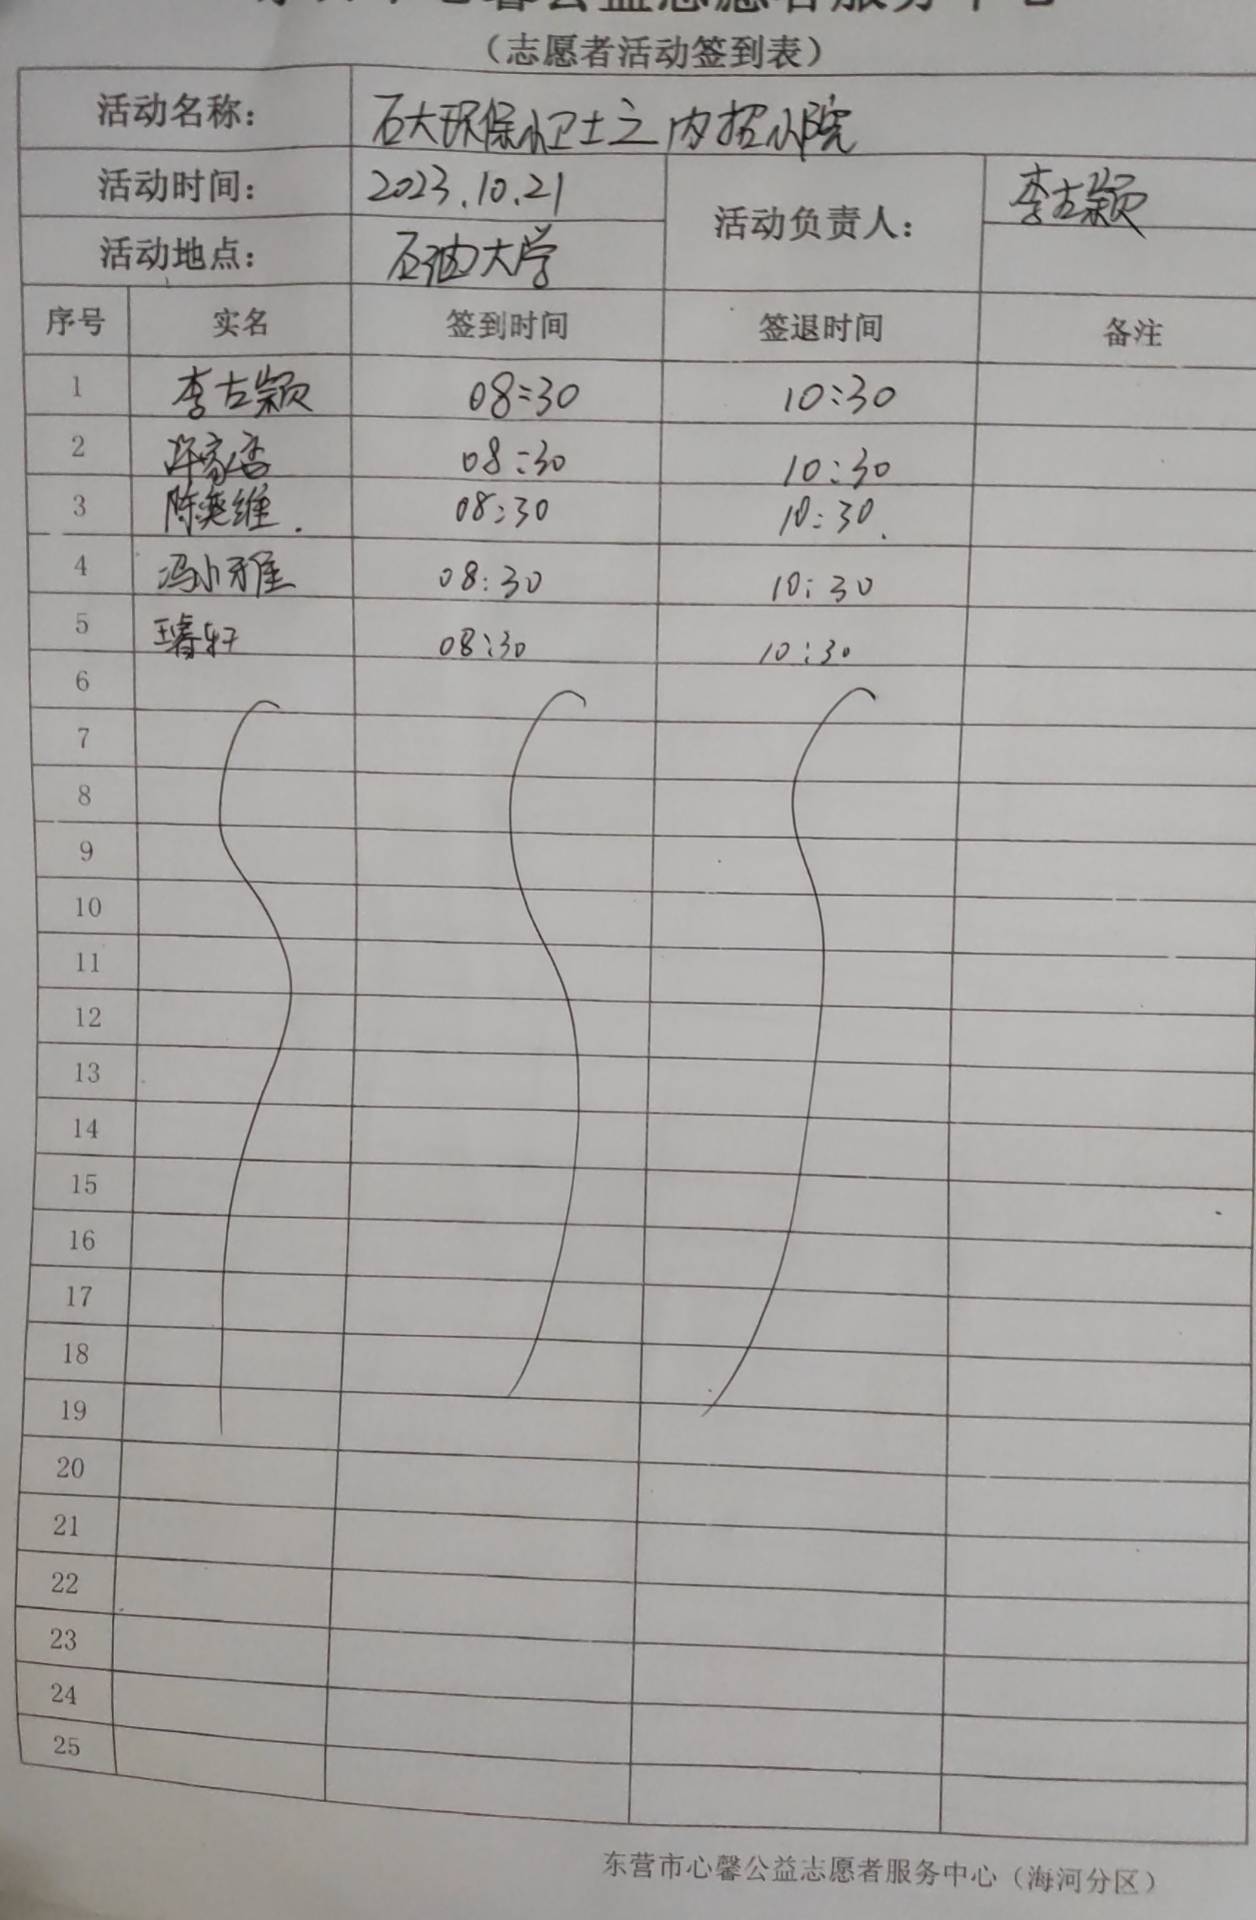 东营市心馨公益志愿者服务中心
（志愿者活动签到表）
活动名称： 石大环保小卫士之内招小院
活动时间： 2023.10.21 活动负责人： 李古颖
活动地点： 石油大学
序号 实名 签到时间 签退时间 备注
1 李古颖 08:30 10:30
2 许家 08:30 10:30
3 陈奕维. 08:30 10:30.
4 冯小雅 08:30 10:30
5 轩 08:30 10:30
6
7
8
9
10
11
12
13
14
15
16
17
18
19
20
21
22
23
24
25
东营市心馨公益志愿者服务中心（海河分区）